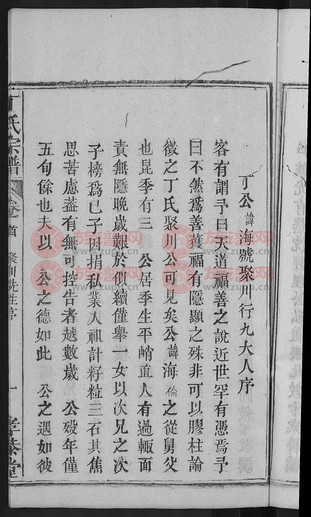 丁公諱海號聚川行九大人序
客有謂予曰天道福善之說近世罕有憑焉予
曰不然為善獲福有隱顯之殊非可以膠柱論
徵之丁氏聚川公可見矣公諱海倫之從舅父
也昆季有三　公居季生平峭直人有過輒面
責無隱晚歲艱於似續僅舉一女以次兄之次
子榜為己子因捐私業入祖計籽粒三石其焦
思苦慮蓋有無可控告者越數歲　公歿年僅
五旬餘也夫以　公之德如此　公之遇如彼
丁氏宗譜
卷首
聚川先生序
一